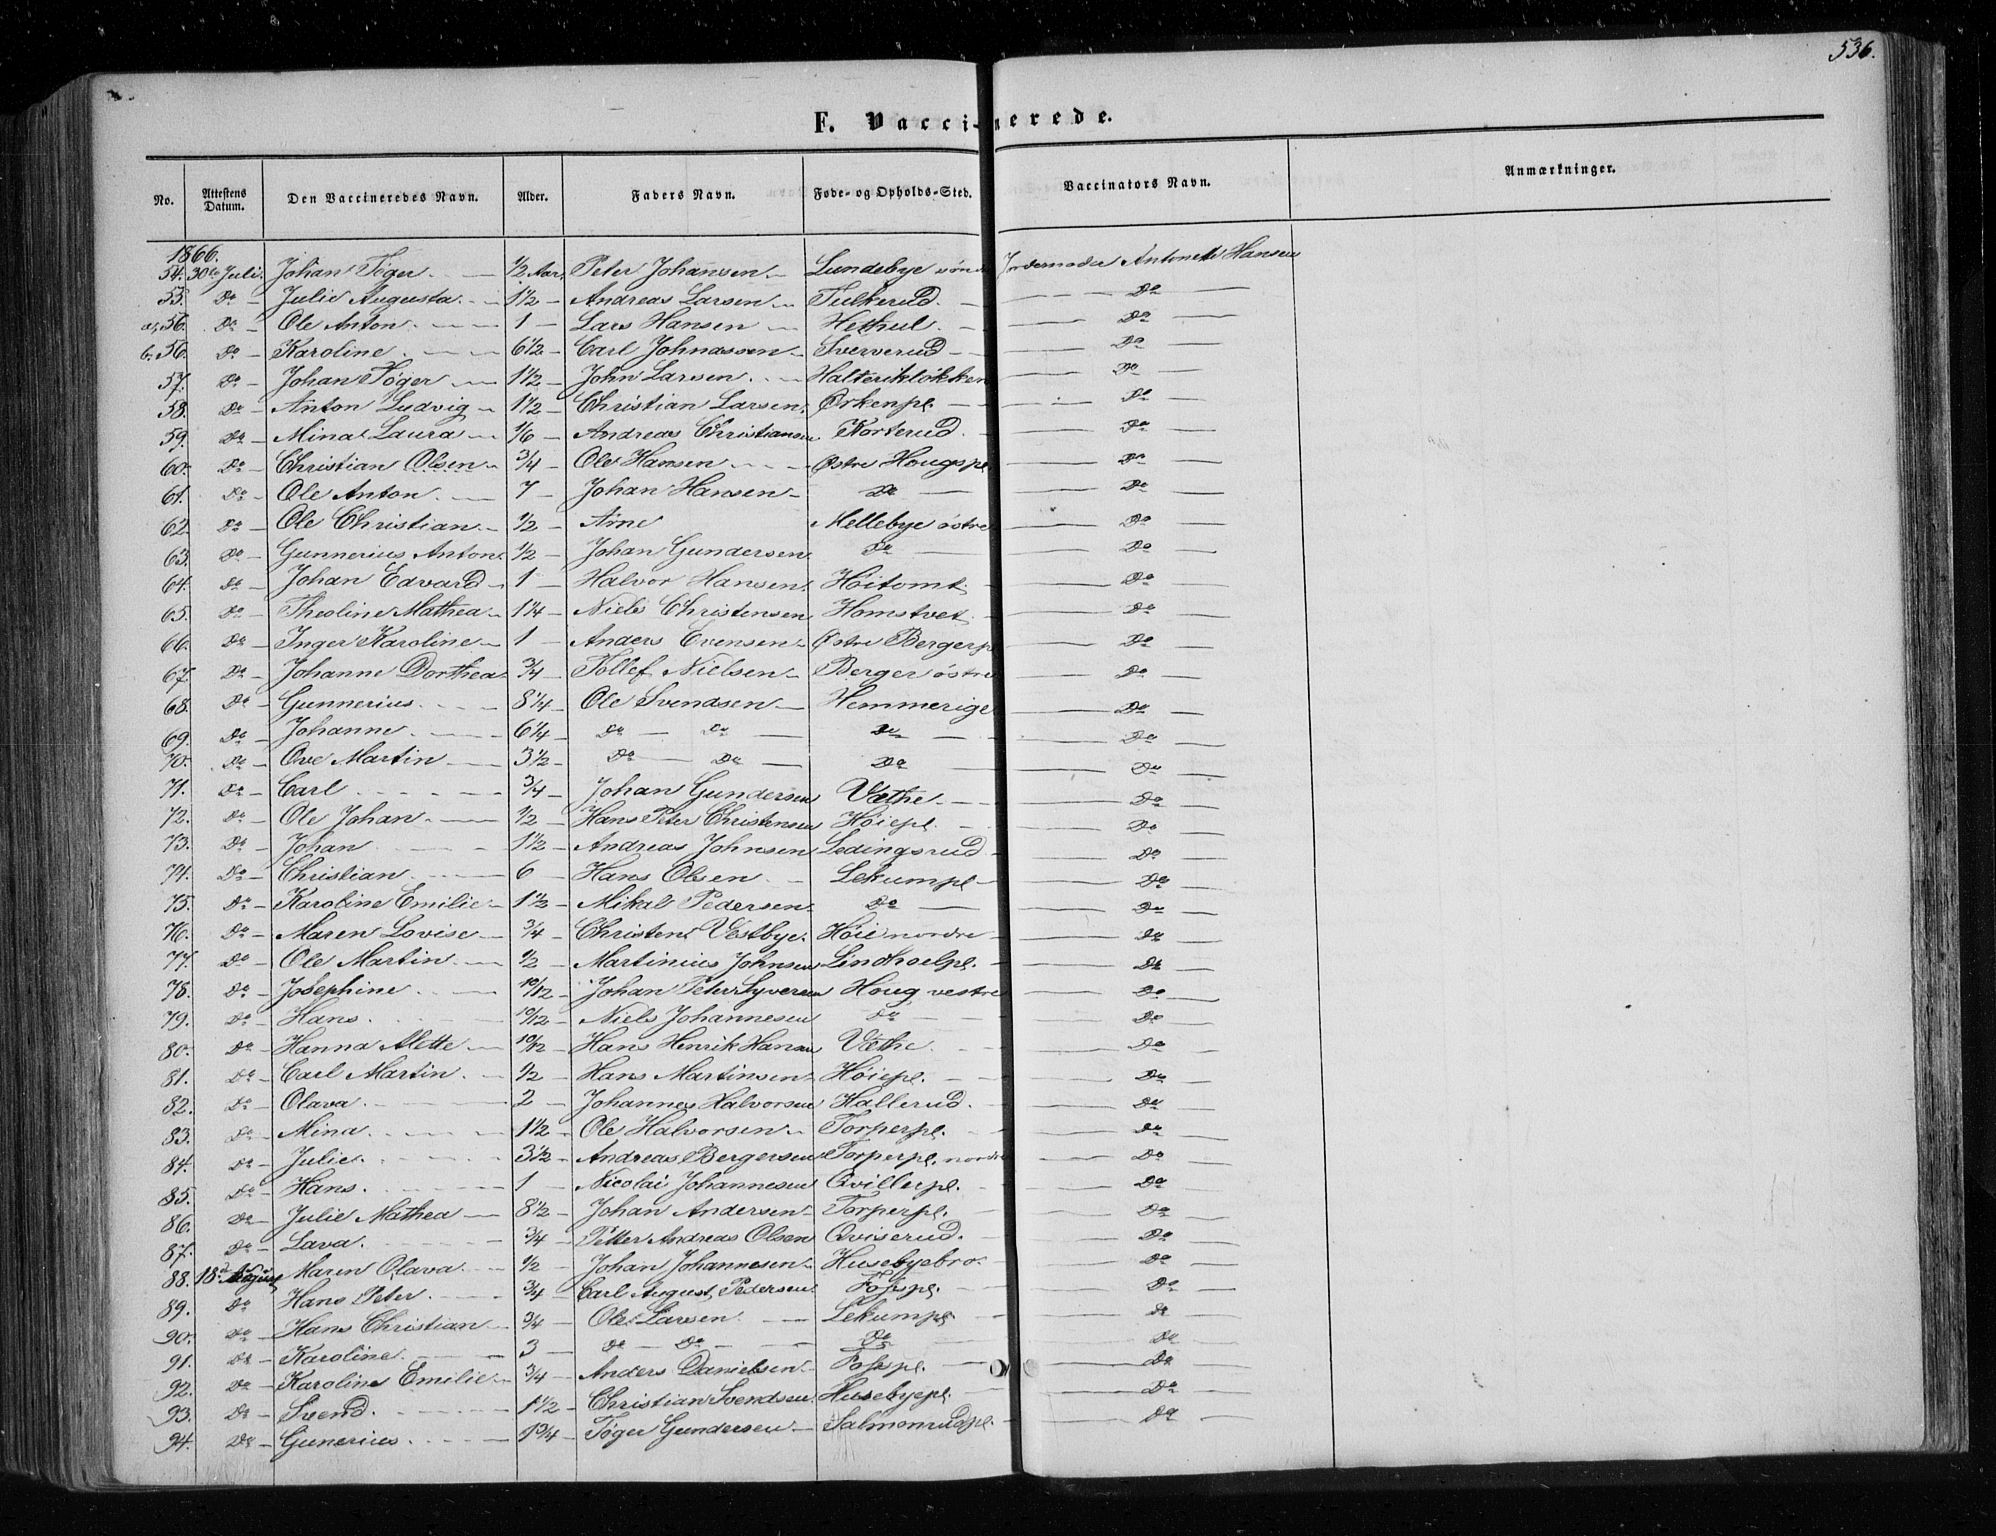 536.
F. Vaccinerede.
No. | Attestens Datum. | Den Vaccineredes Navn. | Alder. | Faders Navn. | Føde- og Opholds-Sted. | Vaccinators Navn. | Anmærkninger.
1866.
54. | 30te Juli | Johan Tøger | 1/2 Aar | Peter Johansen | Lundebye | Jordemoder Antonette Hansen
55. | Do | Julie Augusta | 1 1/2 | Andreas Larsen | Tulkerud | Do
a, 56. | Do | Ole Anton | 1 | Lars Hansen | | Do
b. 56. | Do | Karoline | 6 1/2 | Carl Johnassen | Sververud | Do
57. | Do | Johan Tøger | 1 1/2 | John Larsen | Halterikløkken | Do
58. | Do | Anton Ludvig | 1 1/2 | Christian Larsen | Ørkenpl. | Do
59. | Do | Mina Laura | 1/6 | Andreas Christiansen | Korterud | Do
60. | Do | Christian Olsen | 3/4 | Ole Hansen | Østre Hougspl | Do
61. | Do | Ole Anton | 7 | Johan Hansen | Do | Do
62. | Do | Ole Christian | 1/2 | Arne | Mellebye østre | Do
63. | Do | Gunnerius Anton | 1/2 | Johan Gundersen | Do | Do
64. | Do | Johan Edvard | 1 | Halvor Hansen | Høitomt | Do
65. | Do | Theoline Mathea | 1 1/4 | Niels Christensen | Homstvet | Do
66. | Do | Inger Karoline | 1 | Anders Evensen | Østre Bergerp | Do
67. | Do | Johanne Dorthea | 3/4 | Tollef Nielsen | Berger østre | Do
68. | Do | Gunnerius | 8 1/4 | Ole Svendsen | Hemmerige | Do
69. | Do | Johanne | 6 1/4 | Do Do | Do | Do
70. | Do | Ove Martin | 3 1/2 | Do Do | Do | Do
71. | Do | Carl | 3/4 | Johan Gundersen | Væthe | Do
72. | Do | Ole Johan | 1/2 | Hans Peter Christensen | Høiepl. | Do
73. | Do | Johan | 1 1/2 | Andreas Johnsen | Ledingsrud | Do
74. | Do | Christian | 6 | Hans Olsen | Lekumpl | Do
75. | Do | Karoline Emilie | 1 1/2 | Mikal Pedersen | Do | Do
76. | Do | Maren Lovise | 3/4 | Christen Vestbye | Høie nordre | Do
77. | Do | Ole Martin | 1/2 | Martinius Johnsen | Lindhoelpl. | Do
78. | Do | Josephine | 10/12 | Johan Peter Syversen | Houg vestre | Do
79. | Do | Hans | 10/12 | Niels Johannesen | Do | Do
80. | Do | Hanna Alette | 10/12 | Hans Henrik Hansen | Væthe | Do
81. | Do | Carl Martin | 1/2 | Hans Martinsen | Høiepl. | Do
82. | Do | Olava | 2 | Johannes Halvorsen | Hallerud | Do
83. | Do | Mina | 1 1/2 | Ole Halvorsen | Torperpl. | Do
84. | Do | Julie | 3 1/2 | Andreas Bergersen | Torperpl. nordre | Do
85. | Do | Hans | 1 | Nicolai Johannesen | Qvillerpl. | Do
86. | Do | Julie Mathea | 8 1/2 | Johan Andersen | Torperpl. | Do
87. | Do | Lava | 3/4 | Petter Andreas Olsen | Qviserud | Do
88. | 18d August | Maren Olava | 1/2 | Johan Johannesen | Husebyebro | Do
89. | Do | Hans Peter | 3/4 | Carl August Pedersen | Fosspl. | Do
90. | Do | Hans Christian | 3/4 | Ole Larsen | Lekumpl | Do
91. | Do | Karoline | 3 | Do Do | Do | Do
92. | Do | Karoline Emilie | 3/4 | Anders Danielsen | Fosspl. | Do
93. | Do | Svend | 1 1/2 | Christian Svendsen | Husebyepl. | Do
94. | Do | Gunerius | 1 3/4 | Tøger Gundersen | Salmonrudspl. | Do